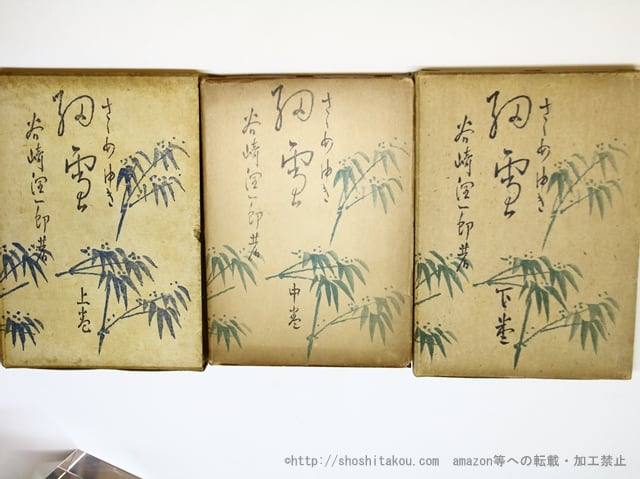 さゝめゆき
細雪
谷崎潤一郎著
上巻
さゝめゆき
細雪
谷崎潤一郎著
中巻
さゝめゆき
細雪
谷崎潤一郎著
下巻
©http://shoshitakou.com amazon等への転載・加工禁止